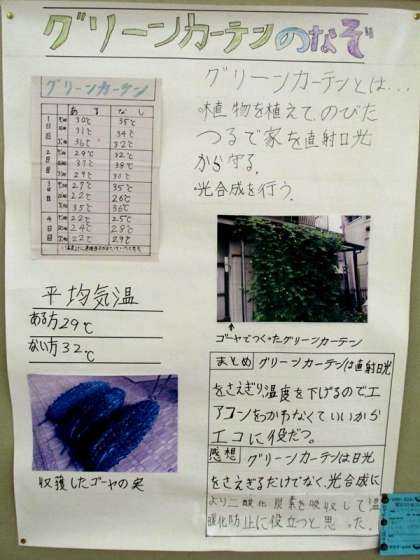 グリーンカーテンのなぞ
グリーンカーテン
ある なし
1日目
30℃ 35℃
31℃ 34℃
36℃ 32℃
2日目
29℃ 32℃
37℃ 38℃
29℃ 30℃
3日目
27℃ 35℃
22℃ 26℃
35℃ 36℃
4日目
22℃ 25℃
24℃ 28℃
22℃ 29℃
グリーンカーテンとは…
・植物を植えて、のびた
つるで家を直射日光
から守る。
・光合成を行う。
↑
ゴーヤでつくったグリーンカーテン
平均気温
ある方29℃
ない方32℃
収穫したゴーヤの実
まとめ グリーンカーテンは直射日光
をさえぎり、温度を下げるのでエ
アコンをつかわなくていいから
エコに役だつ。
感想 グリーンカーテンは日光
をさえぎるだけでなく、光合成に
より二酸化炭素を吸収して温
暖化防止に役立つと思った。